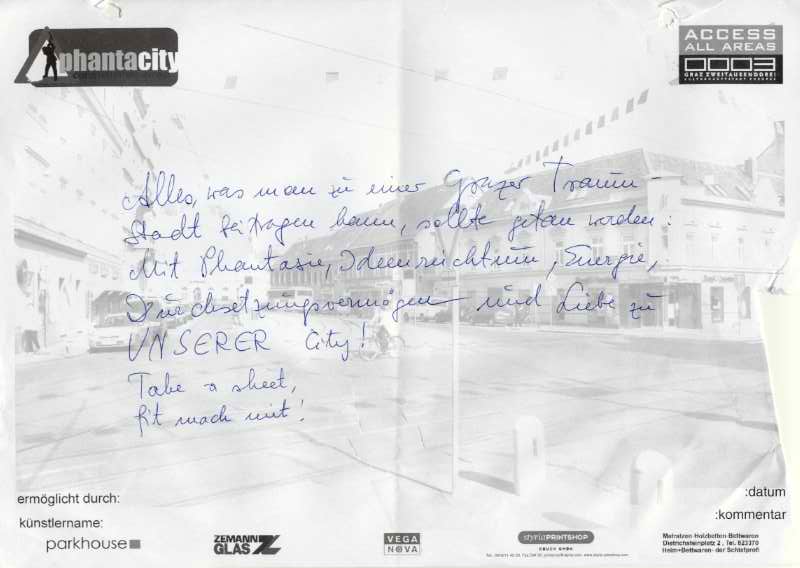 phantacity
ACCESS
ALL AREAS
0003
GRAZ ZWEITAUSENDDREI
KULTURHAUPTSTADT EUROPAS
Alles, was man zu einer Grazer Traum-
Stadt beitragen kann, sollte getan werden:
Mit Phantasie, Ideenreichtum, Energie,
Durchsetzungsvermögen und Liebe zu
UNSERER City!
Take a sheet,
fit mach mit!
ermöglicht durch:
:datum
künstlername:
:kommentar
parkhouse
ZEMANN
GLAS
VEGA
NOVA
styriaPRINTSHOP
DRUCK GMBH
Matratzen-Holzbetten-Bettwaren
Dietrichsteinplatz 2 , Tel. 823370
Heim+Bettwaren- der Schlafprofi